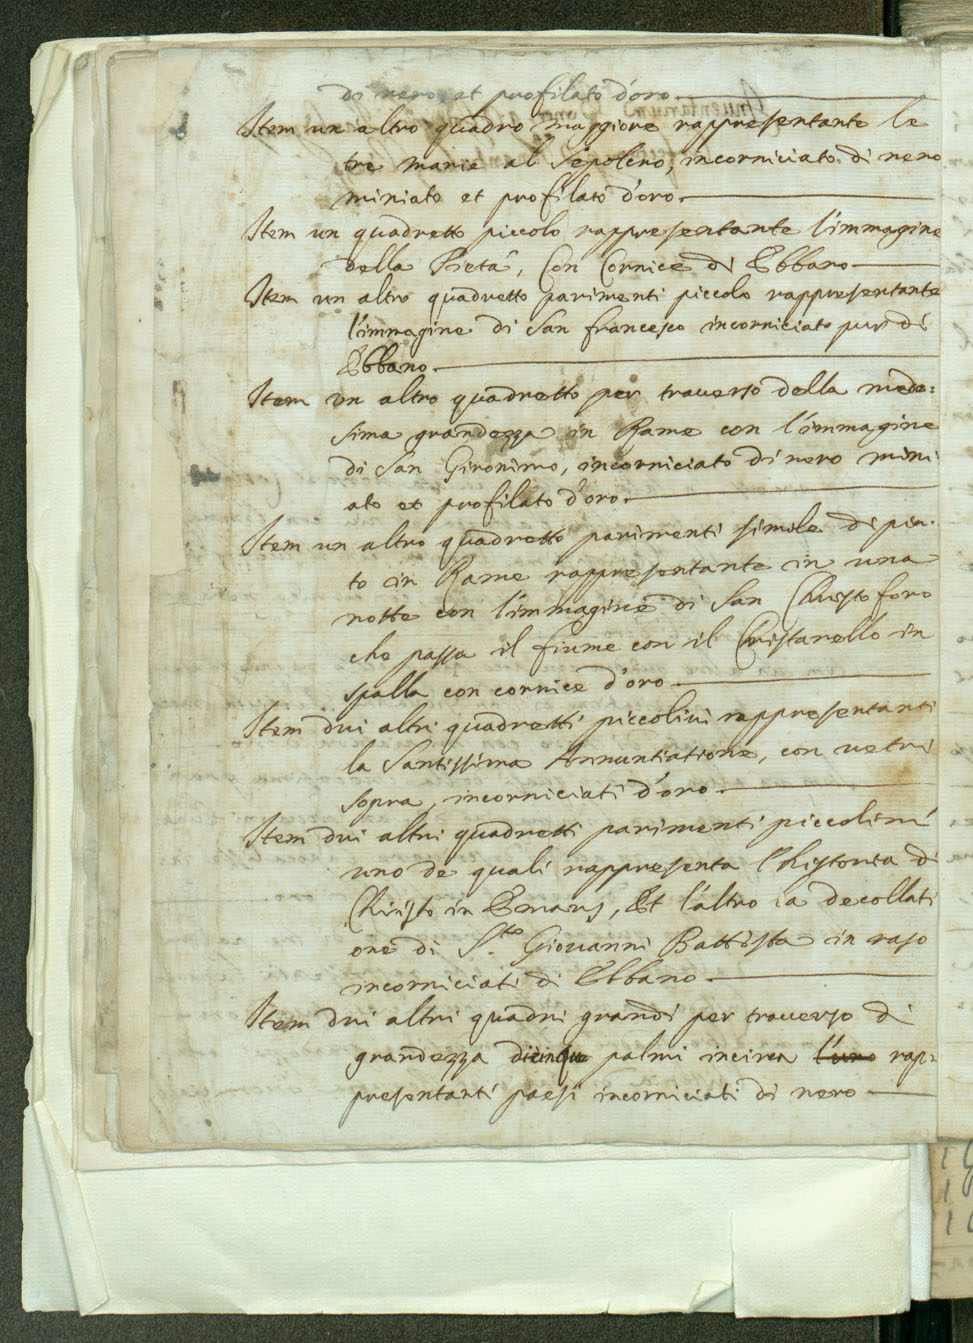 di nero, et profilato d'oro.
Item un altro quadro maggiore rappresentante le
tre marie al sepolcro, incorniciato di nero
miniato et profilato d'oro.
Item un quadretto piccolo rappresentante l'immagine
della Pietà, Con Cornice di Ebbano
Item un altro quadretto parimenti piccolo rappresentante
l'immagine di San francesco incorniciato pur di
Ebbano.
Item un altro quadretto per trauerso della mede:
sima grandezza in Rame con l'immagine
di San Gironimo, incorniciato di nero mini
ato et profilato d'oro.
Item un altro quadretto parimenti simile di pin.
to in Rame rappresentante in una
notte con l'immagine di San Christoforo
che passa il fiume con il Cristarello in
spalla con cornice d'oro
Item dui altri quadretti piccolini rappresentanti
la Santissima Annuntiatione, con uetri
sopra, incorniciati d'oro.
Item dui altri quadretti parimenti piccolini
uno de quali rappresenta l'Historia di
Christo in Emaus, Et l'altro la decollati
one di S.to Giouanni Battista in raso
incorniciati di Ebbano
Item dui altri quadri grandi per trauerso di
grandezza di cinque palmi incirca l'uno rap:
presentanti paesi incorniciati di nero